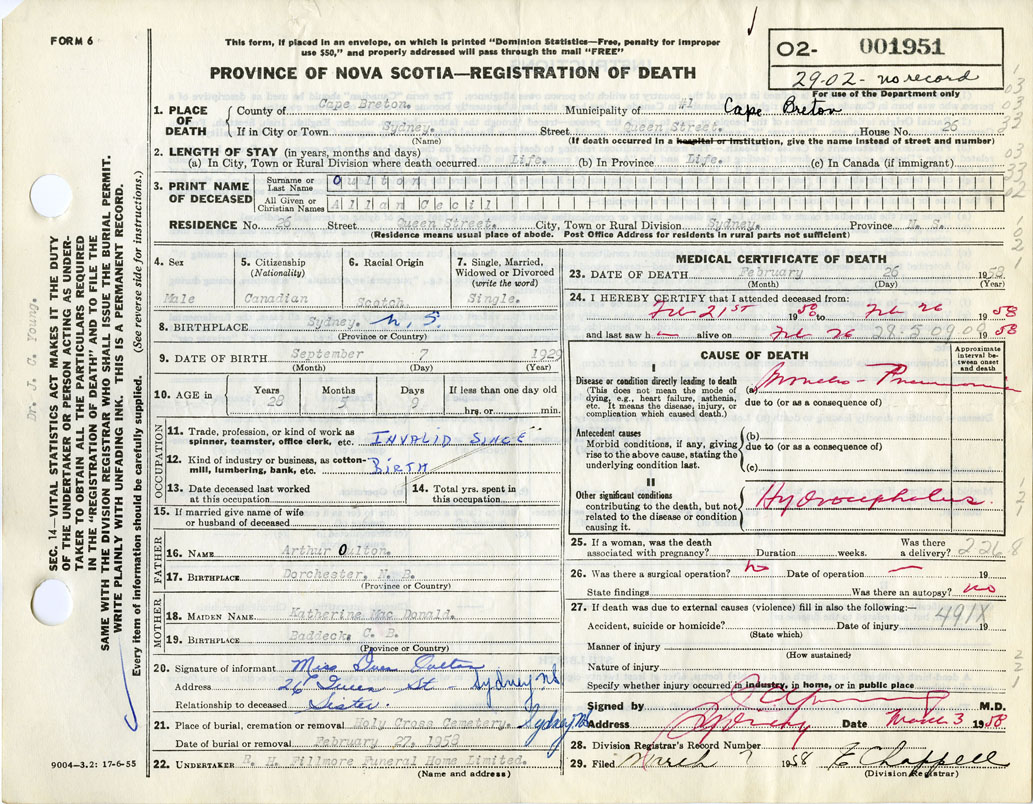 FORM 6
This form, if placed in an envelope, on which is printed "Dominion Statistics—Free, penalty for improper
use $50," and properly addressed will pass through the mail "FREE"
O2- 001951
29-02- no record
For use of the Department only
PROVINCE OF NOVA SCOTIA—REGISTRATION OF DEATH
1. PLACE OF DEATH
County of Cape Breton. Municipality of #1 Cape Breton
If in City or Town Sydney. Street Queen Street. House No. 26
(Name) (If death occurred in a hospital or institution, give the name instead of street and number)
2. LENGTH OF STAY (in years, months and days)
(a) In City, Town or Rural Division where death occurred Life. (b) In Province Life. (c) In Canada (if immigrant)
3. PRINT NAME OF DECEASED
Surname or Last Name Oulton
All Given or Christian Names Allan Cecil
RESIDENCE No. 26 Street Queen Street. City, Town or Rural Division Sydney. Province N. S.
(Residence means usual place of abode. Post Office Address for residents in rural parts not sufficient)
4. Sex Male
5. Citizenship (Nationality) Canadian
6. Racial Origin Scotch.
7. Single, Married, Widowed or Divorced (write the word) Single.
8. BIRTHPLACE Sydney. N. S.
(Province or Country)
9. DATE OF BIRTH September 7 1929
(Month) (Day) (Year)
10. AGE in Years 28 Months 5 Days 9 If less than one day old
hrs. or min.
OCCUPATION
11. Trade, profession, or kind of work as spinner, teamster, office clerk, etc. INVALID SINCE
12. Kind of industry or business, as cotton-mill, lumbering, bank, etc. BIRTH
13. Date deceased last worked at this occupation
14. Total yrs. spent in this occupation
15. If married give name of wife or husband of deceased
FATHER
16. NAME Arthur Oulton.
17. BIRTHPLACE Dorchester, N. B.
(Province or Country)
MOTHER
18. MAIDEN NAME Katherine Mac Donald.
19. BIRTHPLACE Baddeck. C. B.
(Province or Country)
20. Signature of informant Miss Oulton
Address 26 Queen St - Sydney NS
Relationship to deceased Sister.
21. Place of burial, cremation or removal Holy Cross Cemetery. Sydney NS
Date of burial or removal February 27, 1958
22. UNDERTAKER B. H. Fillmore Funeral Home Limited.
(Name and address)
9004-3.2: 17-6-55
MEDICAL CERTIFICATE OF DEATH
23. DATE OF DEATH February 26 1958
(Month) (Day) (Year)
24. I HEREBY CERTIFY that I attended deceased from:
Feb 21ST 1958 to Feb 26 1958
and last saw h alive on Feb 26 28-5 09 09 1958
CAUSE OF DEATH
Approximate interval between onset and death
I
Disease or condition directly leading to death
(This does not mean the mode of dying, e.g., heart failure, asthenia, etc. It means the disease, injury, or complication which caused death.)
(a) Broncho-Pneumonia
due to (or as a consequence of)
Antecedent causes
Morbid conditions, if any, giving rise to the above cause, stating the underlying condition last.
(b)
due to (or as a consequence of)
(c)
II
Other significant conditions
contributing to the death, but not related to the disease or condition causing it.
Hydrocephalus
25. If a woman, was the death associated with pregnancy? Duration weeks. Was there a delivery? 2268
26. Was there a surgical operation? no Date of operation — 19
State findings Was there an autopsy? no
27. If death was due to external causes (violence) fill in also the following:—
Accident, suicide or homicide? Date of injury 491X 19
(State which)
Manner of injury
(How sustained)
Nature of injury
Specify whether injury occurred in industry, in home, or in public place
Signed by M.D.
Address Sydney Date March 3 1958
28. Division Registrar's Record Number
29. Filed March 7 1958 E Chappell
(Division Registrar)
SEC. 14—VITAL STATISTICS ACT MAKES IT THE DUTY
OF THE UNDERTAKER OR PERSON ACTING AS UNDER-
TAKER TO OBTAIN ALL THE PARTICULARS REQUIRED
IN THE "REGISTRATION OF DEATH" AND TO FILE THE
SAME WITH THE DIVISION REGISTRAR WHO SHALL ISSUE THE BURIAL PERMIT.
WRITE PLAINLY WITH UNFADING INK. THIS IS A PERMANENT RECORD.
Every item of information should be carefully supplied. (See reverse side for instructions.)
Dr. J. C. Young.